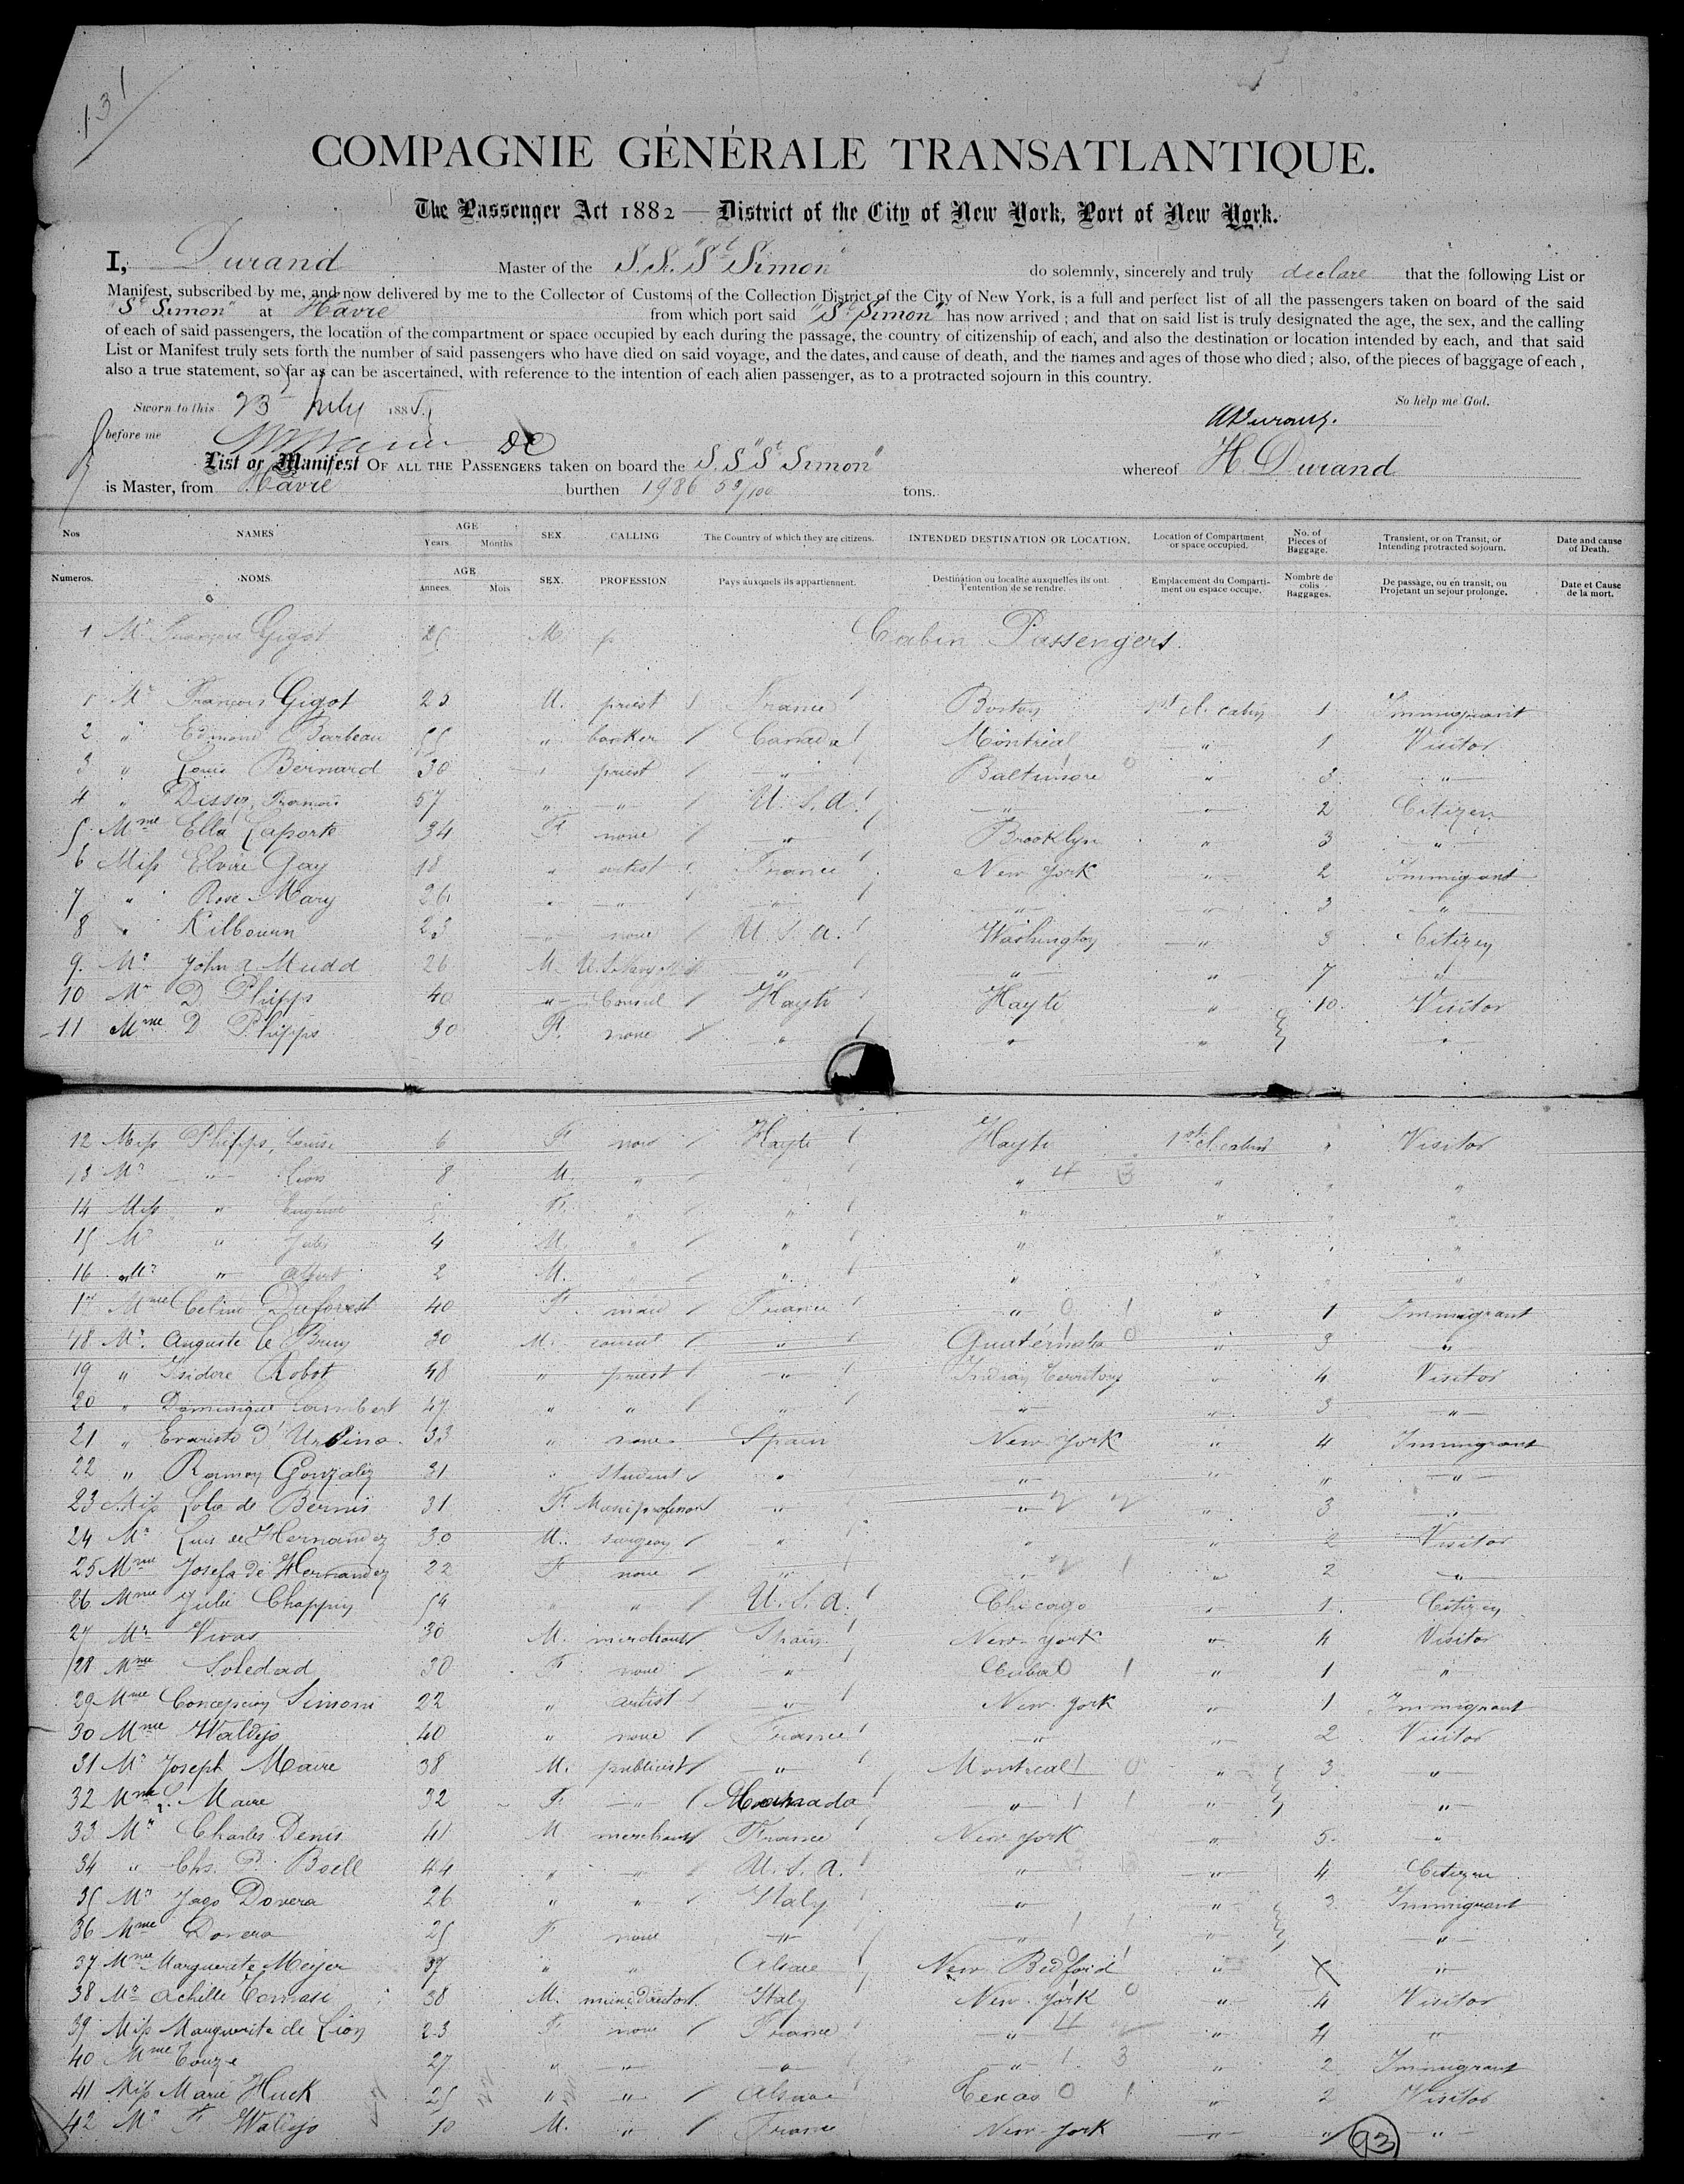 131
COMPAGNIE GÉNÉRALE TRANSATLANTIQUE.
The Passenger Act 1882 — District of the City of New York, Port of New York.
I, Durand Master of the S.S. "St Simon" do solemnly, sincerely and truly declare that the following List or
Manifest, subscribed by me, and now delivered by me to the Collector of Customs of the Collection District of the City of New York, is a full and perfect list of all the passengers taken on board of the said
"St Simon" at Havre from which port said "St Simon" has now arrived ; and that on said list is truly designated the age, the sex, and the calling
of each of said passengers, the location of the compartment or space occupied by each during the passage, the country of citizenship of each, and also the destination or location intended by each, and that said
List or Manifest truly sets forth the number of said passengers who have died on said voyage, and the dates, and cause of death, and the names and ages of those who died ; also, of the pieces of baggage of each ,
also a true statement, so far as can be ascertained, with reference to the intention of each alien passenger, as to a protracted sojourn in this country.
Sworn to this 23 July 1885 So help me God.
before me
List or Manifest OF ALL THE PASSENGERS taken on board the S.S "St Simon" whereof H. Durand
is Master, from Havre burthen 1986 59/100 tons.
Nos NAMES AGE Years Months SEX CALLING The Country of which they are citizens. INTENDED DESTINATION OR LOCATION. Location of Compartment or space occupied. No. of Pieces of Baggage. Transient, or on Transit, or Intending protracted sojourn. Date and cause of Death.
Numeros. NOMS. AGE Années. Mois SEX. PROFESSION Pays auxquels ils appartiennent. Destination ou localité auxquelles ils ont l'entention de se rendre. Emplacement du Compartiment ou espace occupé. Nombre de colis Baggages. De passage, ou en transit, ou Projetant un sejour prolonge. Date et Cause de la mort.
1 Mr François Gigot 25 M p Cabin Passengers.
1 Mr François Gigot 25 M. priest France Boston 1st cl. cabin 1 Immigrant
2 " Edmond Barbeau 55 " banker Canada Montreal " 1 Visitor
3 " Louis Bernard 30 " priest " Baltimore " 3 "
4 " Dissez, François 57 " " U.S.A. " " 2 Citizen
5 Mme Ella Laporte 34 F. none " Brooklyn " 3 "
6 Miss Elvire Gay 18 " artist France New York " 2 Immigrant
7 " Rose Mary 26 " " " " " 3 "
8 " Kilbourn 23 " none U.S.A. Washington " 3 Citizen
9 Mr John A. Mudd 26 M. U.S. Navy " " " 7 "
10 Mr D Phipps 40 " Consul Hayti Hayti " 10 Visitor
11 Mme D Phipps 30 F. none " " " "
12 Miss Phipps, Louise 6 F none Hayti Hayti 1st cl. cabin " Visitor
13 Mr " Léon 8 M. " " " " " "
14 Miss " Eugénie 5 F. " " " " " "
15 Mr " Jules 4 M. " " " " " "
16 Mr " Albert 2 M. " " " " " "
17 Mme Celine Duforest 40 F. maid France " " 1 Immigrant
18 Mr. Auguste Le Brun 30 M. consul " Guatemala " 3 "
19 " Isidore Robot 48 " priest " Indian Territory " 4 Visitor
20 " Dominique Lambert 47 " " " " " 3 "
21 " Evaristo D'Urbino 33 " none Spain New York " 4 Immigrant
22 " Ramon Gonzalez 31 " Student " " " " "
23 Miss Lola de Bernis 31 F. Music professor " " " 3 "
24 Mr Luis de Hernandez 30 M. surgeon " " " 2 Visitor
25 Mme Josefa de Hernandez 22 F none " " " 2 "
26 Mme Julie Chappuy 54 " " U.S.A. Chicago " 1 Citizen
27 Mr Vivas 30 M. merchant Spain New York " 4 Visitor
28 Mme Soledad 30 F. none " Cuba " 1 "
29 Mme Concepcion Simoni 22 " artist " New York " 1 Immigrant
30 Mme Waldejo 40 " none France " " 2 Visitor
31 Mr Joseph Maire 38 M. publicist " Montreal " 3 "
32 Mme Maire 32 F. " Canada " " "
33 Mr Charles Denis 41 M merchant France New York " 5 "
34 " Chs. P. Boell 44 " " U.S.A. " " 4 Citizen
35 Mr Jago Dovera 26 " " Italy " " 2 Immigrant
36 Mme Dovera 25 F none " " " "
37 Mme Marguerite Meyer 37 " " Alsace New Bedford " "
38 Mr Achille Tomasi 38 M. music director Italy New York " 4 Visitor
39 Miss Marguerite de Lion 23 F none France " " 4 "
40 Mme Touze 27 " " " " " 2 Immigrant
41 Miss Marie Huck 25 " " Alsace Texas " 2 Visitor
42 Mr F Waldejo 10 M. " France New York " " "
93